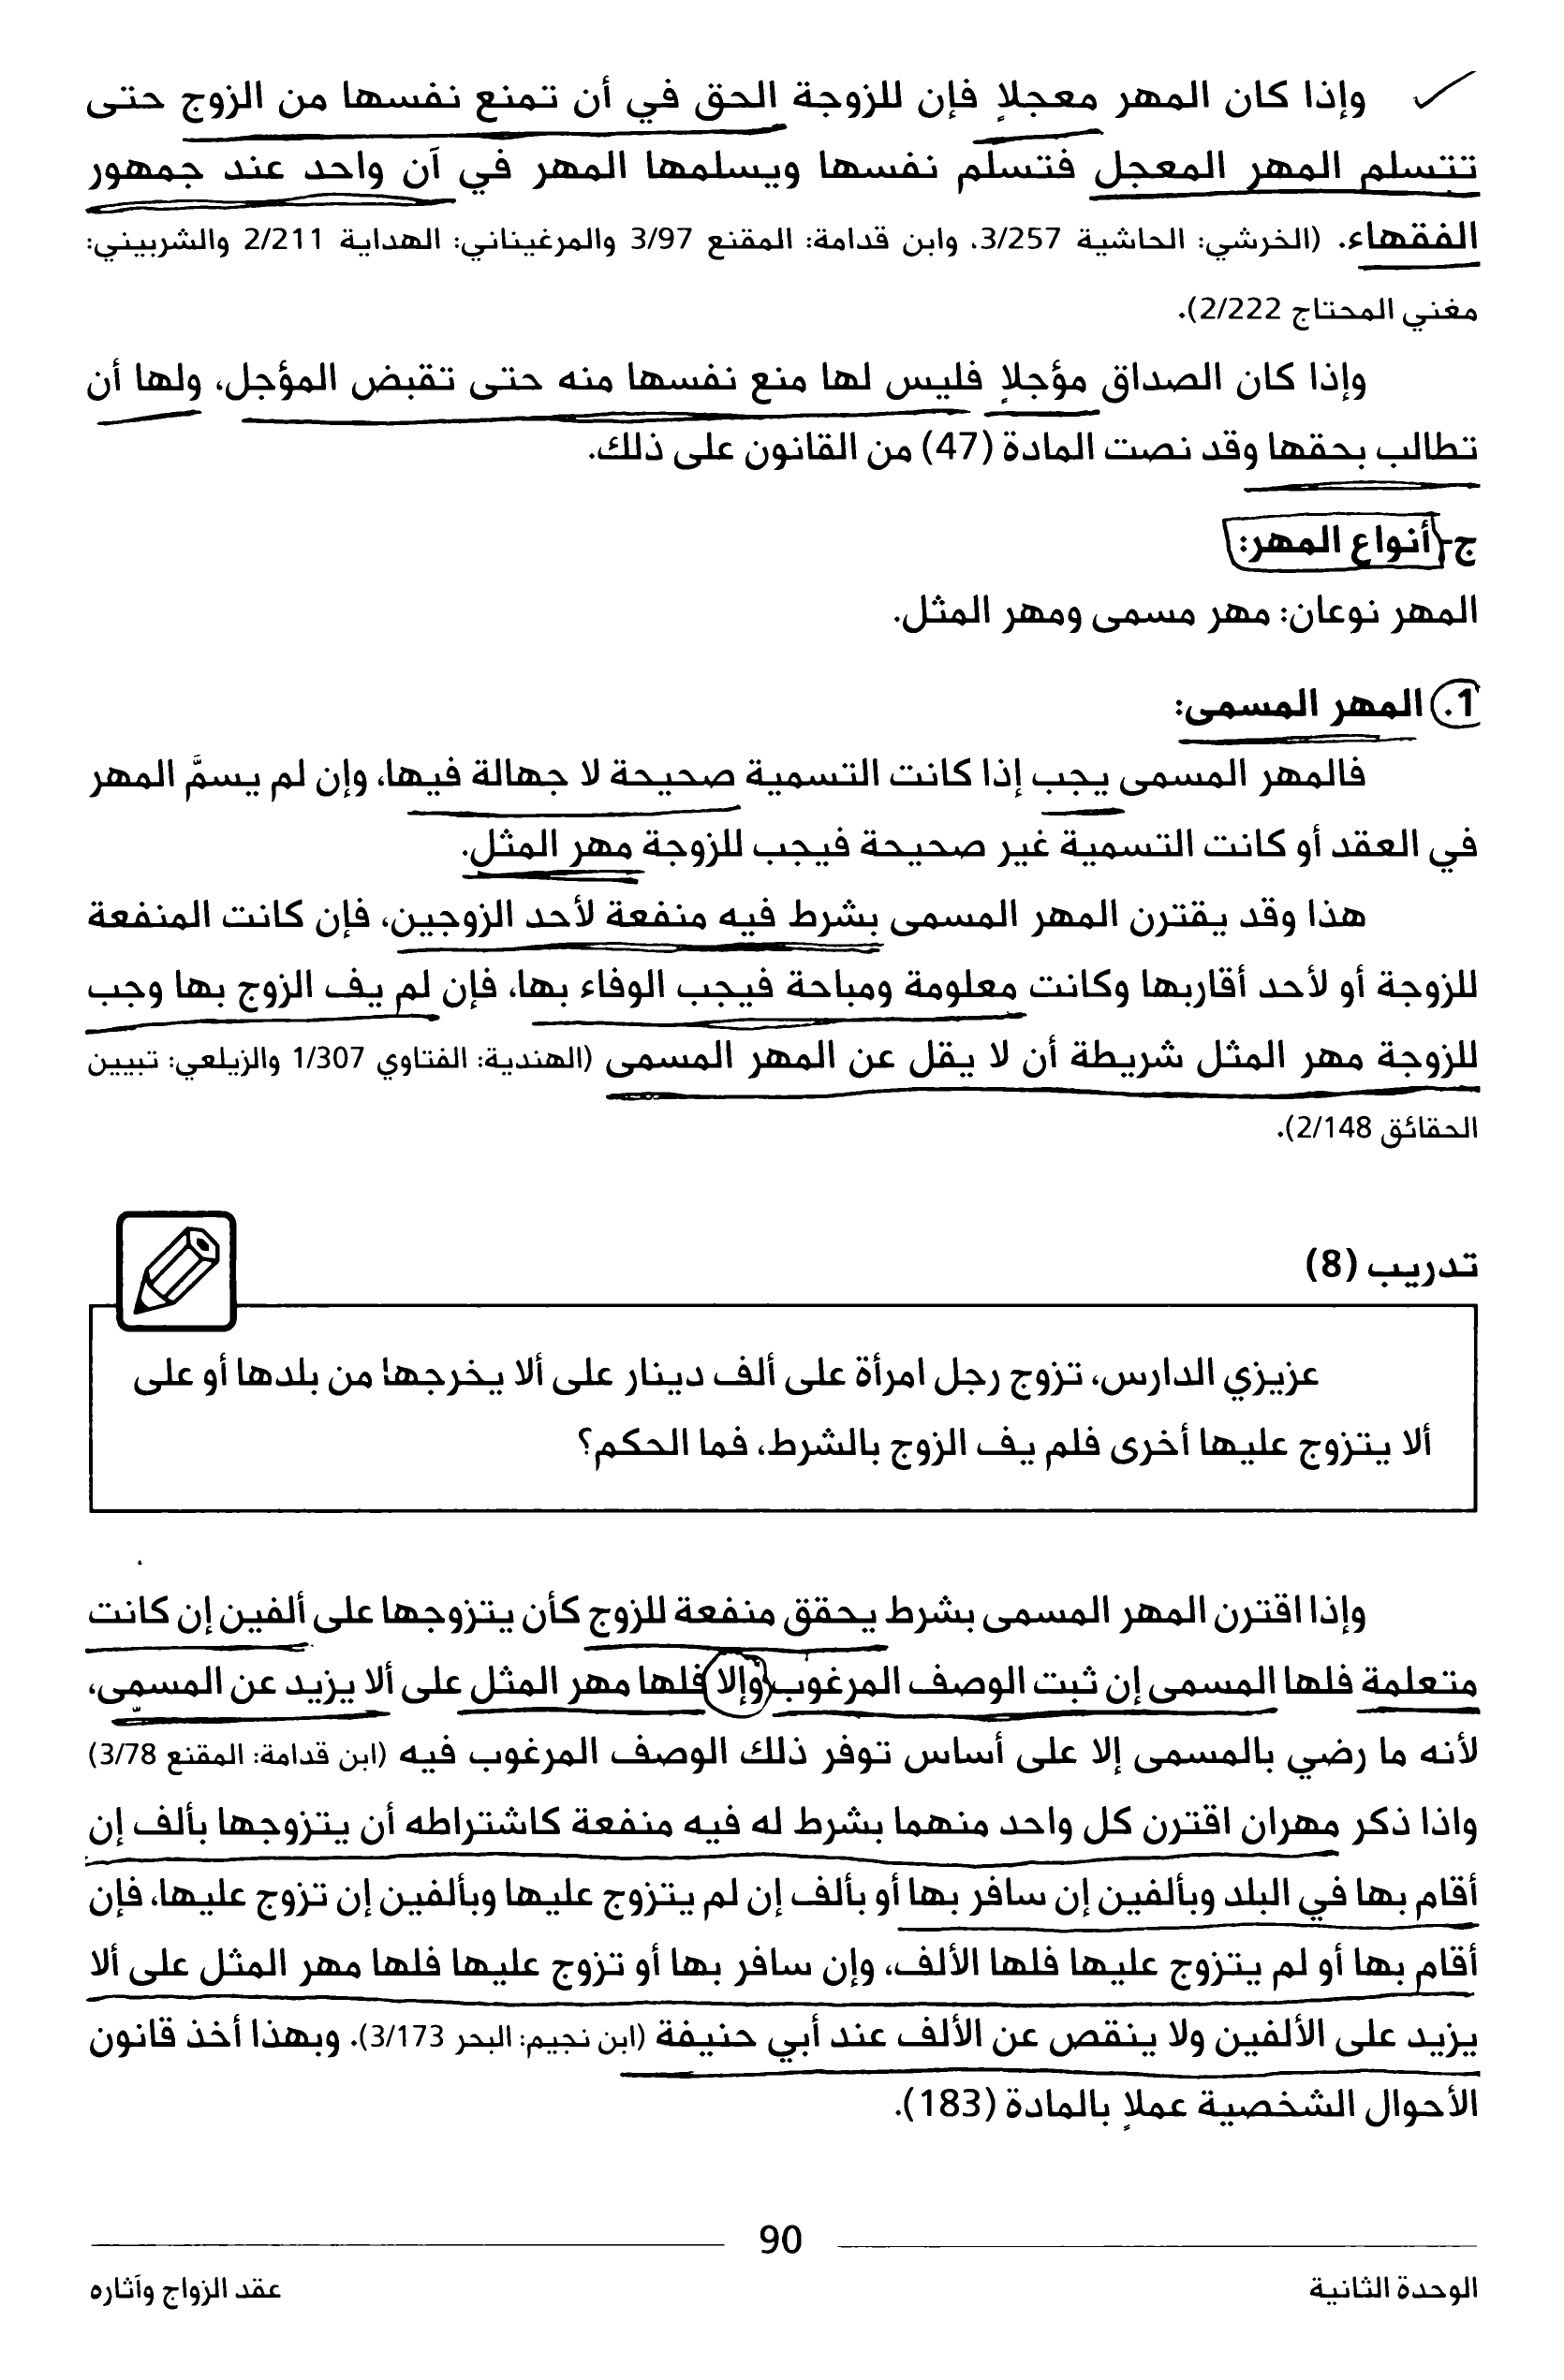 وإذا كان المهر معجلاً فإن للزوجة الحق في أن تمنع نفسها من الزوج حتى
تتسلم المهر المعجل فتسلم نفسها ويسلمها المهر في آن واحد عند جمهور
الفقهاء. (الخرشي: الحاشية 3/257، وابن قدامة: المقنع 3/97 والمرغيناني: الهداية 2/211 والشربيني:
مغني المحتاج 2/222).
وإذا كان الصداق مؤجلاً فليس لها منع نفسها منه حتى تقبض المؤجل، ولها أن
تطالب بحقها وقد نصت المادة (47) من القانون على ذلك.
ج- أنواع المهر:
المهر نوعان: مهر مسمى ومهر المثل.
1. المهر المسمى:
فالمهر المسمى يجب إذا كانت التسمية صحيحة لا جهالة فيها، وإن لم يسمَّ المهر
في العقد أو كانت التسمية غير صحيحة فيجب للزوجة مهر المثل.
هذا وقد يقترن المهر المسمى بشرط فيه منفعة لأحد الزوجين، فإن كانت المنفعة
للزوجة أو لأحد أقاربها وكانت معلومة ومباحة فيجب الوفاء بها، فإن لم يف الزوج بها وجب
للزوجة مهر المثل شريطة أن لا يقل عن المهر المسمى (الهندية: الفتاوي 1/307 والزيلعي: تبيين
الحقائق 2/148).
تدريب (8)
عزيزي الدارس، تزوج رجل امرأة على ألف دينار على ألا يخرجها من بلدها أو على
ألا يتزوج عليها أخرى فلم يف الزوج بالشرط، فما الحكم؟
وإذا اقترن المهر المسمى بشرط يحقق منفعة للزوج كأن يتزوجها على ألفين إن كانت
متعلمة فلها المسمى إن ثبت الوصف المرغوب وإلا فلها مهر المثل على ألا يزيد عن المسمى،
لأنه ما رضي بالمسمى إلا على أساس توفر ذلك الوصف المرغوب فيه (ابن قدامة: المقنع 3/78)
واذا ذكر مهران اقترن كل واحد منهما بشرط له فيه منفعة كاشتراطه أن يتزوجها بألف إن
أقام بها في البلد وبألفين إن سافر بها أو بألف إن لم يتزوج عليها وبألفين إن تزوج عليها، فإن
أقام بها أو لم يتزوج عليها فلها الألف، وإن سافر بها أو تزوج عليها فلها مهر المثل على ألا
يزيد على الألفين ولا ينقص عن الألف عند أبي حنيفة (ابن نجيم: البحر 3/173). وبهذا أخذ قانون
الأحوال الشخصية عملاً بالمادة (183).
90
الوحدة الثانية
عقد الزواج وآثاره